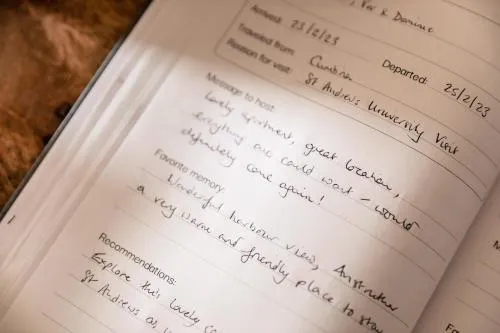 , Vee & Dominic
Arrived: 23/2/23
Departed: 25/2/23
Traveled from: Cumbria
Reason for visit: St Andrews University Visit
Message to host:
Lovely apartment, great location,
everything one could want - would
definitely come again!
Favorite memory:
Wonderful harbour view, Anstruther
a very warm and friendly place to stay
Recommendations:
Explore this lovely
St Andrews as